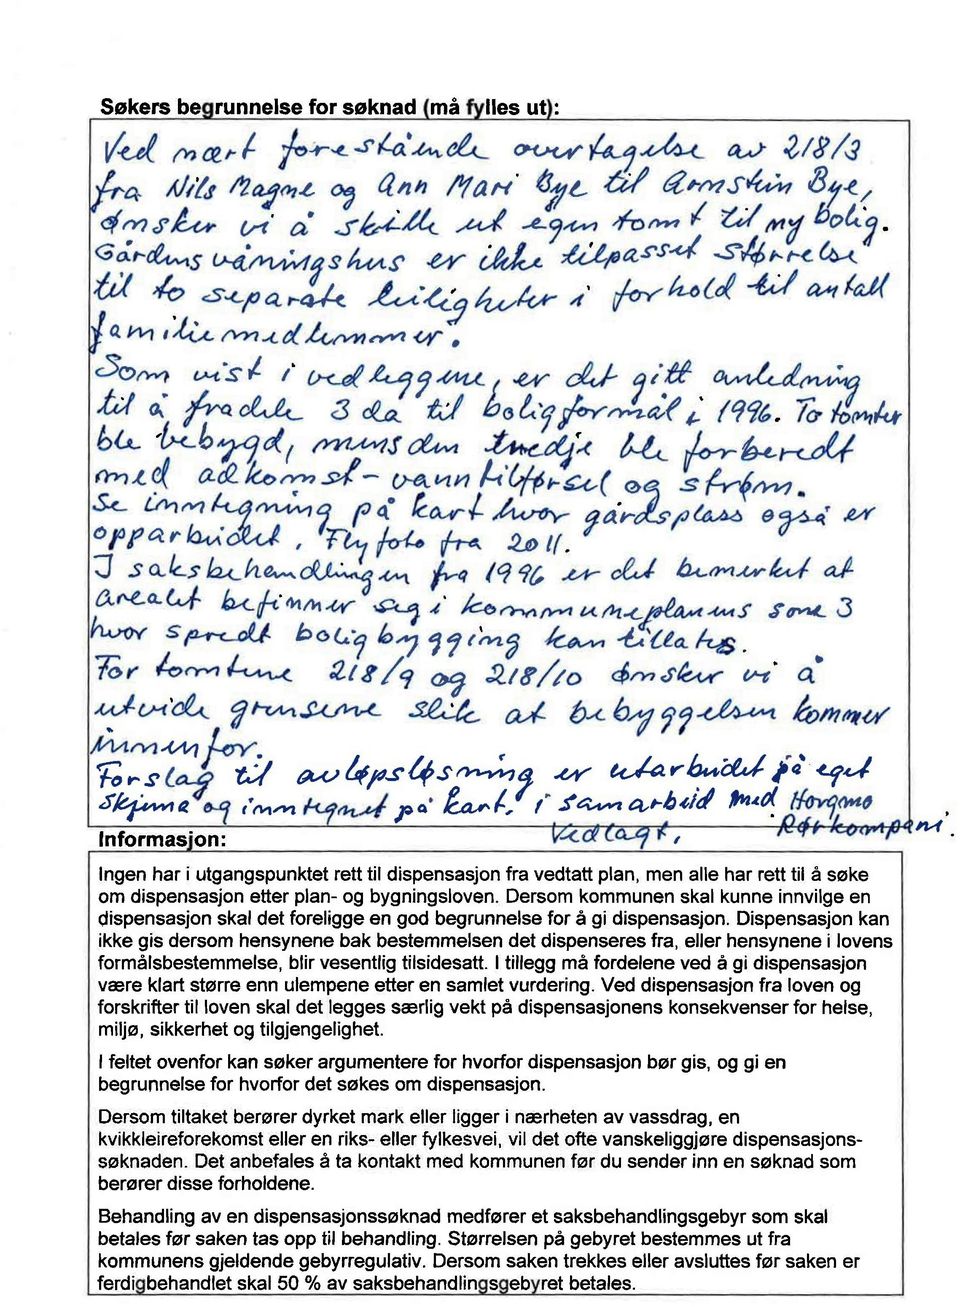 Søkers begrunnelse for søknad (må fylles ut):
Ved nært forestående overtagelse av 218/3
fra Nils Magne og Ann Mari Bye til Arnstein Bye,
ønsker vi å skille ut egen tomt til ny bolig.
Gårdens våningshus er ikke tilpasset størrelse
til to separate leiligheter i forhold til antall
familiemedlemmer.
Som vist i vedleggene, er det gitt anledning
til å fradele 3 da til boligformål i 1996. To tomter
ble bebygd, mens den tredje ble forberedt
med adkomst - vanntilførsel og strøm.
Se inntegning på kart hvor gårdsplass også er
opparbeidet, Flyfoto fra 2011.
I saksbehandlingen fra 1996 er det bemerket at
arealet befinner seg i kommuneplanens sone 3
hvor spredt boligbygging kan tillates.
For tomtene 218/9 og 218/10 ønsker vi å
utvide grensene slik at bebyggelsen kommer
innenfor.
Forslag til avløpsløsning er utarbeidet på eget
skjema og inntegnet på kart, i samarbeid med Hovqmo
Vedlagt, Rørkompani.
Informasjon:
Ingen har i utgangspunktet rett til dispensasjon fra vedtatt plan, men alle har rett til å søke
om dispensasjon etter plan- og bygningsloven. Dersom kommunen skal kunne innvilge en
dispensasjon skal det foreligge en god begrunnelse for å gi dispensasjon. Dispensasjon kan
ikke gis dersom hensynene bak bestemmelsen det dispenseres fra, eller hensynene i lovens
formålsbestemmelse, blir vesentlig tilsidesatt. I tillegg må fordelene ved å gi dispensasjon
være klart større enn ulempene etter en samlet vurdering. Ved dispensasjon fra loven og
forskrifter til loven skal det legges særlig vekt på dispensasjonens konsekvenser for helse,
miljø, sikkerhet og tilgjengelighet.
I feltet ovenfor kan søker argumentere for hvorfor dispensasjon bør gis, og gi en
begrunnelse for hvorfor det søkes om dispensasjon.
Dersom tiltaket berører dyrket mark eller ligger i nærheten av vassdrag, en
kvikkleireforekomst eller en riks- eller fylkesvei, vil det ofte vanskeliggjøre dispensasjons-
søknaden. Det anbefales å ta kontakt med kommunen før du sender inn en søknad som
berører disse forholdene.
Behandling av en dispensasjonssøknad medfører et saksbehandlingsgebyr som skal
betales før saken tas opp til behandling. Størrelsen på gebyret bestemmes ut fra
kommunens gjeldende gebyrregulativ. Dersom saken trekkes eller avsluttes før saken er
ferdigbehandlet skal 50 % av saksbehandlingsgebyret betales.